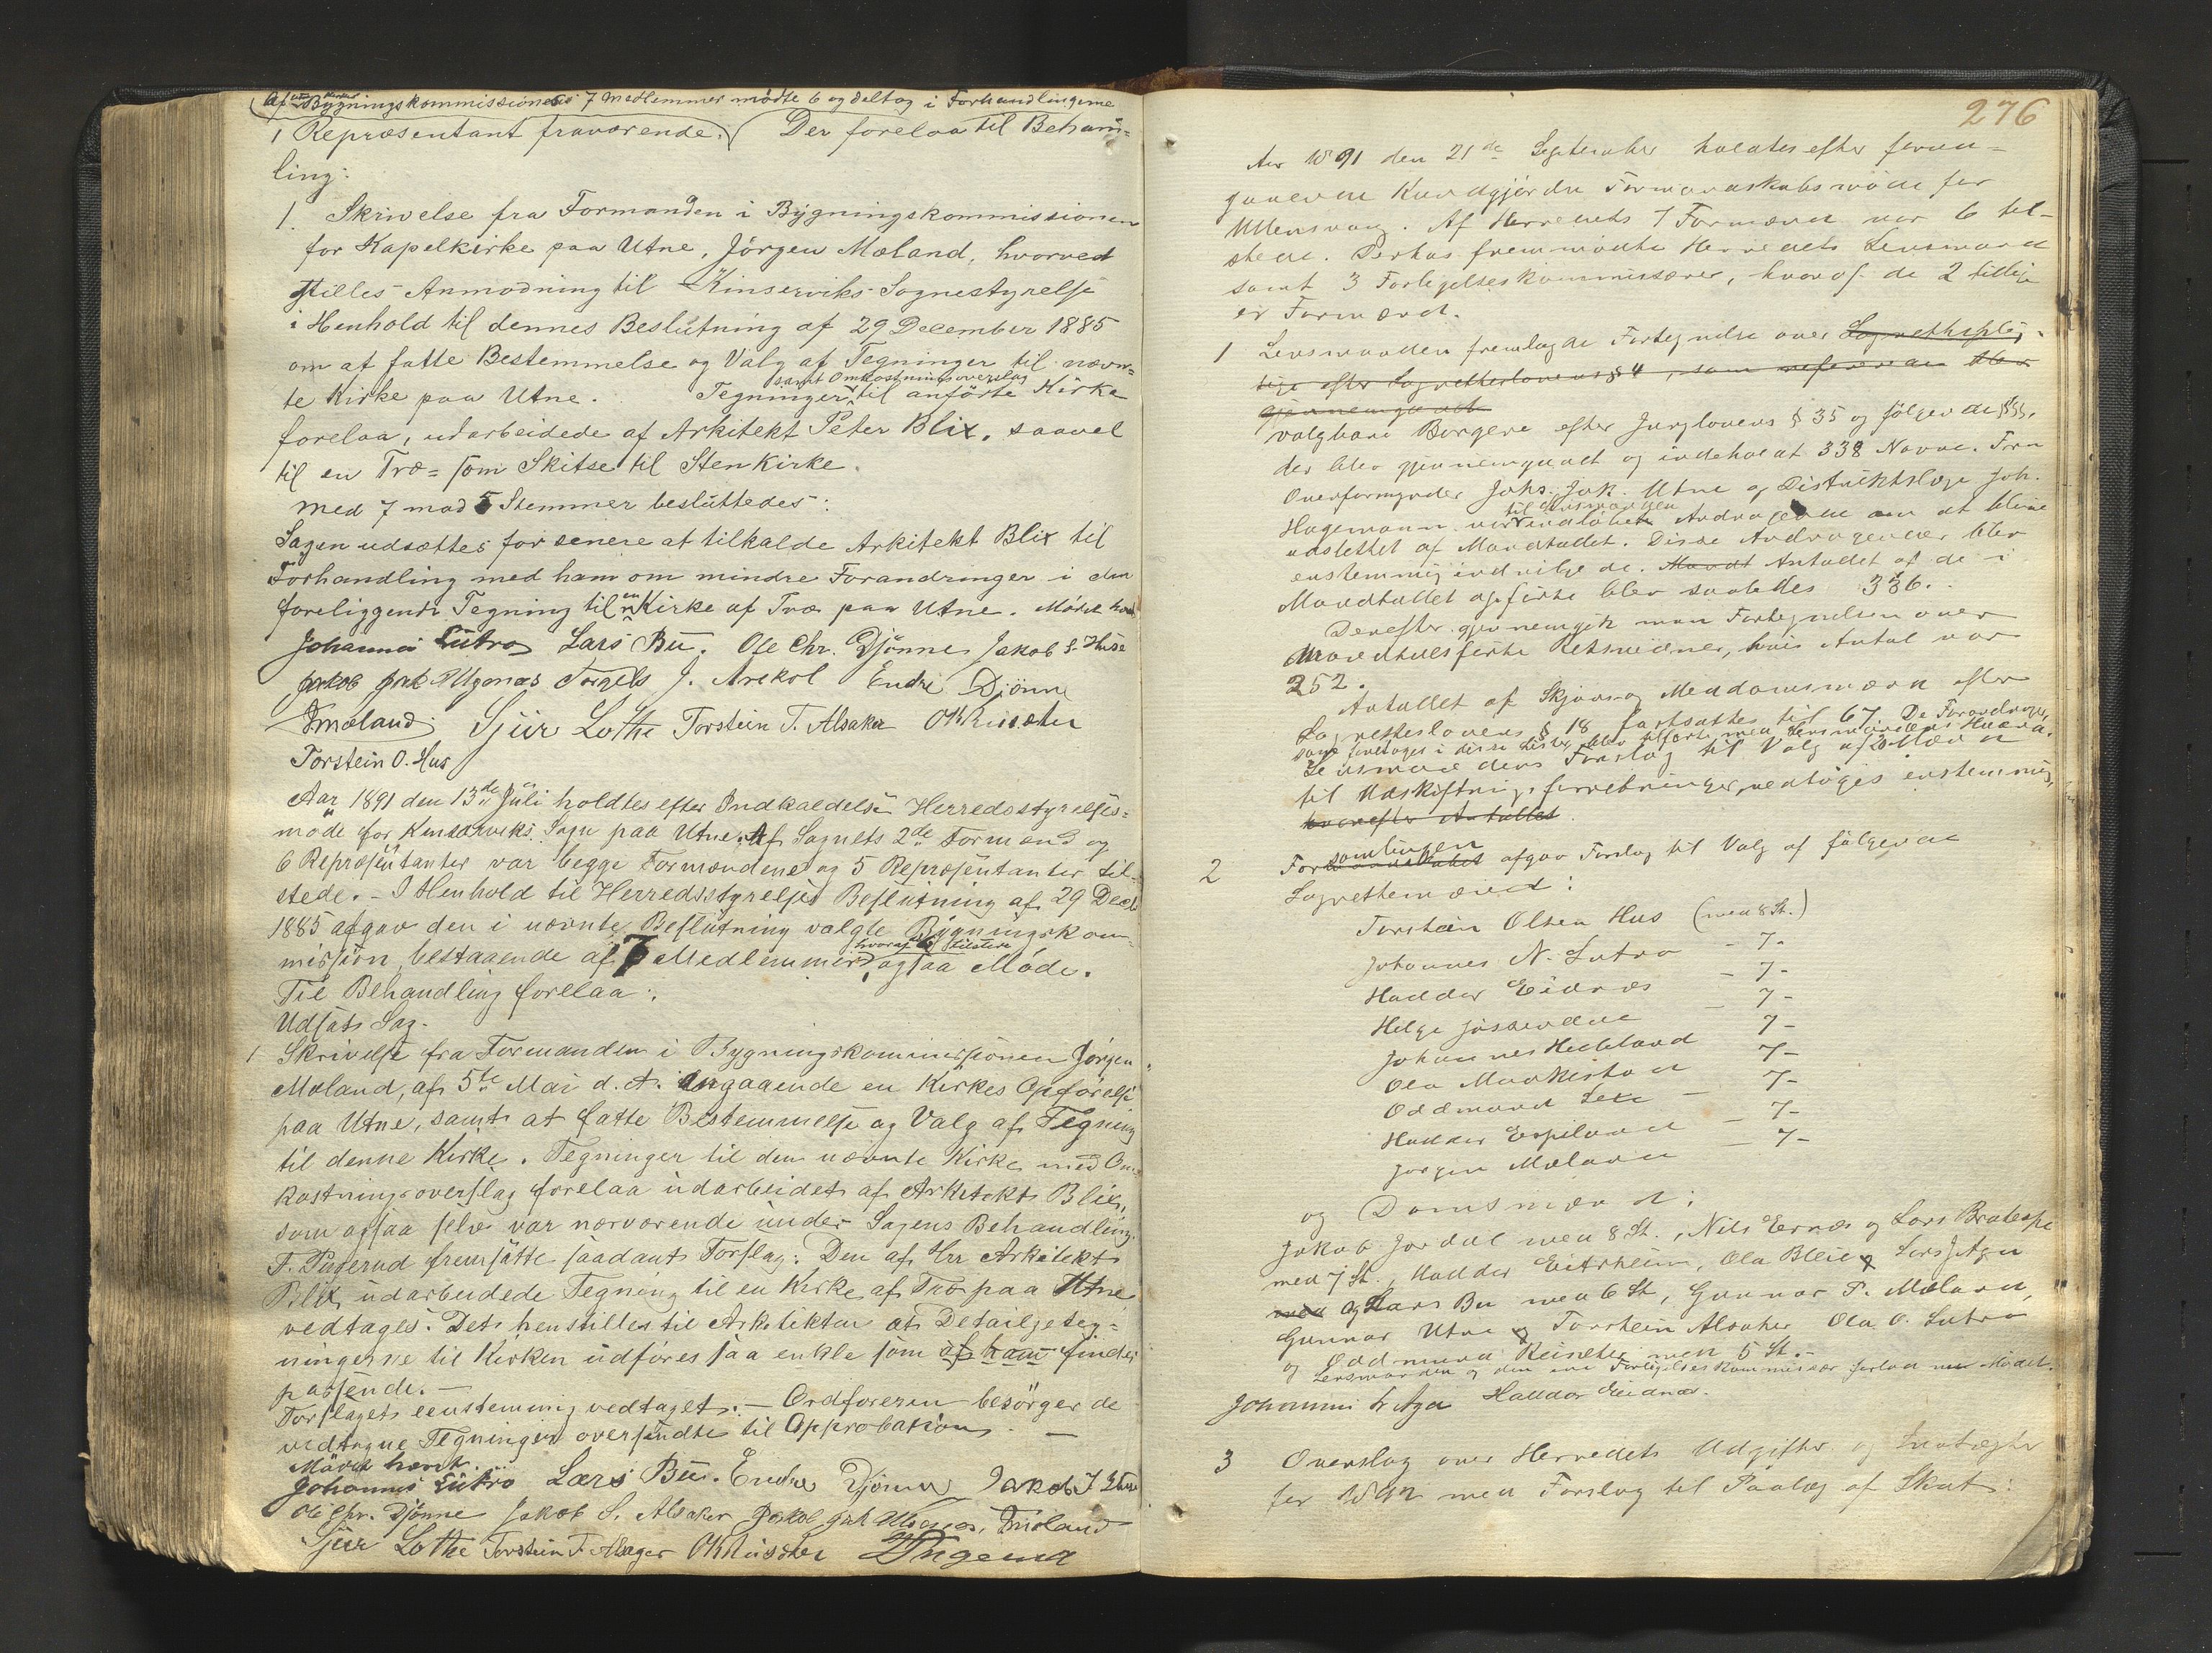 Af Bygningskommissionens 7 Medlemmer mödte 6 og deltog i Forhandlingerne
1 Repræsentant fraværende. Der forelaa til Behand=
ling:
1. Skrivelse fra Formanden i Bygningskommissionen
for Kapelkirke paa Utne, Jörgen Mæland, hvorved
stilles Anmodning til Kinserviks Sognestyrelse
i Henhold til dennes Beslutning af 29 December 1885
om at fatte Bestemmelse og Valg af Tegninger til nævn=
te Kirke paa Utne. Tegninger samt Omkostningsoverslag til anförte Kirke
forelaa, udarbeidede af Arkitekt Peter Blix, saavel
til en Træ= som Skitse til Stenkirke.
Med 7 mod 5 Stemmer besluttedes:
Sagen udsættes for senere at tilkalde Arkitekt Blix til
Forhandling med ham om mindre Forandringer i den
foreliggende Tegning til en Kirke af Træ paa Utne. Mödet hævet
Johannes Lutro Lars Bu. Ole Chr. Djönne Jakob S. Huse
Jakob Jak Utgenæs Torgels J. Arekol Endre Djönne
JMæland Sjur Lothe Torstein T. Alsaker
Torstein O. Hus
Aar 1891 den 13de Juli holdtes efter Indkaldelse Herredsstyrelses=
möde for Kinserviks Sogn paa Utne. Af Sognets 2de Formænd og
6 Repræsentanter var begge Formændene og 5 Repræsentanter til-
stede. - I Henhold til Herredsstyrelses Beslutning af 29 Decb
1885 afgav den i nævnte Beslutning valgte Bygningskom=
mission, bestaaende af 7 Medlemmer, hvoraf 6 tilstede ogsaa Möde.
Til Behandling forelaa:
Udsats Sag.
1 Skrivelse fra Formanden i Bygningskommissionen Jörgen
Mæland, af 5te Mai d. A. angaaende en Kirkes Opförelse
paa Utne, samt at fatte Bestemmelse og Valg af Tegning
til denne Kirke. Tegninger til den nævnte Kirke med Om=
kostningsoverslag forelaa udarbeidet af Arkitekt Blix,
som ogsaa selv var nærværende under Sagens Behandling.
T. Puterud fremsatte saadant Forslag: Den af Hrr Arkitekt
Blix udarbeidede Tegning til en Kirke af Træ paa Utne
vedtages. Det henstilles til Arkitekten at Detailjeteg=
ningerne til Kirken udföres saa enkle som af ham findes
passende. -
Forslaget eenstemmig vedtaget. - Ordföreren besörger de
vedtagne Tegninger oversendte til Approbation. -
Mödet hævet.
Johannes Lutro Lars Bu. Endre Djönne Jakob
Ole Chr. Djönne Jakob S. Alsaker Jakob Jak Utgenæs, JMæland
Sjur Lothe Torstein T. Alsager
276
Aar 1891 den 21de September holdtes efter forud=
gaaende Kundgjörelse Formandskabsmöde for
Ullensvang. Af Herredets 7 Formænd var 6 til-
stede. Derhos fremmödte Herredets Lensmand
samt 3 Forligelseskommissærer, hvoraf de 2 tillige
er Formænd.
1 Lensmanden fremlagde Fortegnelse over Lagretteplig-
tige efter Lagrettelovens § 4, som refereredes blev
gjennemgaaet
valgbare Borgere efter Jurylovens § 35 og fölgende §§,
der blev gjennemgaaet og indeholdt 338 Navne. Fra
Overformynder Johs. Jak. Utne og Distriktslæge Joh.
Hagemann var til Lensmanden indlöbet Andragende om at blive
udslettet af Mandtallet. Disse Andragender blev
enstemmig indvilgede. Mandt Antallet af de i
Mandtallet opförte blev saaledes 336.
Derefter gjennemgik man Fortegnelsen over
mandtalsförte Retsvidner, hvis Antal var
252.
Antallet af Skjöns og Meddomsmænd efter
Lagretteslovens § 18 fastsattes til 67. De Forandringer,
som foretoges i disse Lister, blev tilförte med Lensmandens Haand.
Lensmandens Forslag til Valg af Mænd
til Udskiftningsforretninger, vedtoges enstemmig,
hvorefter Antallet.
2 Forsamlingen afgav Forslag til Valg af fölgende
Lagrettemænd:
Torstein Olsen Hus (med 8 St.)
Johannes N. Lutro - 7-
Haldor Eidnæs - 7-
Helge Jösendal - 7-
Johannes Helleland 7-
Ola Maakestad 7-
Oddmund Sexe - 7-
Haldor Espeland - 7-
Jörgen Mæland - 7-
og Domsmænd:
Jakob Jordal med 8 St., Nils Ernæs og Lars Bratespe
med 7 St., Haldor Eitrheim, Ola Bleie Lars J. Aga
med og Lars Bu med 6 St, Gunnar P. Mæland,
Gunnar Utne og Torstein Alsaker Ola O. Lutro
og Oddmund Reisæter med 5 St. -
Lensmanden og den ene Forligelseskommissær forlod nu Mödet.
Johannes L Aga Haldor Eidnæs.
3 Overslag over Herredets Udgifter og Indtægter
for 1892 med Forslag til Paalæg af Skat: